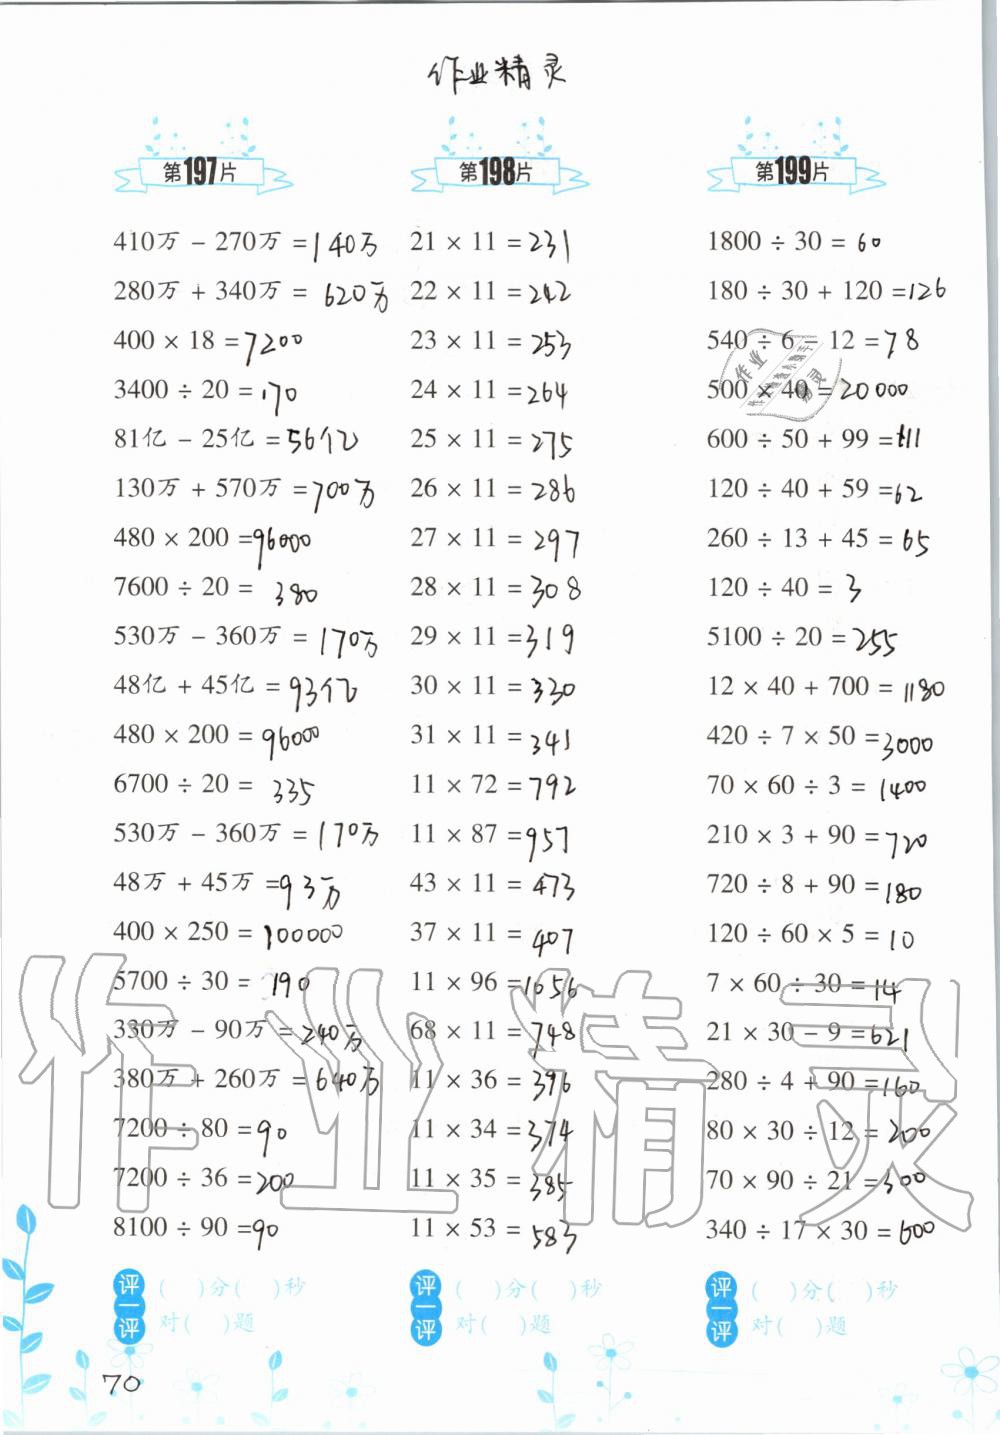 作业精灵
第197片
410万 - 270万 = 140万
280万 + 340万 = 620万
400 × 18 = 7200
3400 ÷ 20 = 170
81亿 - 25亿 = 56亿
130万 + 570万 = 700万
480 × 200 = 96000
7600 ÷ 20 = 380
530万 - 360万 = 170万
48亿 + 45亿 = 93亿
480 × 200 = 96000
6700 ÷ 20 = 335
530万 - 360万 = 170万
48万 + 45万 = 93万
400 × 250 = 100000
5700 ÷ 30 = 190
330万 - 90万 = 240万
380万 + 260万 = 640万
7200 ÷ 80 = 90
7200 ÷ 36 = 200
8100 ÷ 90 = 90
评一评
( )分( )秒
对( )题
第198片
21 × 11 = 231
22 × 11 = 242
23 × 11 = 253
24 × 11 = 264
25 × 11 = 275
26 × 11 = 286
27 × 11 = 297
28 × 11 = 308
29 × 11 = 319
30 × 11 = 330
31 × 11 = 341
11 × 72 = 792
11 × 87 = 957
43 × 11 = 473
37 × 11 = 407
11 × 96 = 1056
68 × 11 = 748
11 × 36 = 396
11 × 34 = 374
11 × 35 = 385
11 × 53 = 583
评一评
( )分( )秒
对( )题
第199片
1800 ÷ 30 = 60
180 ÷ 30 + 120 = 126
540 ÷ 6 - 12 = 78
500 × 40 = 20000
600 ÷ 50 + 99 = 111
120 ÷ 40 + 59 = 62
260 ÷ 13 + 45 = 65
120 ÷ 40 = 3
5100 ÷ 20 = 255
12 × 40 + 700 = 1180
420 ÷ 7 × 50 = 3000
70 × 60 ÷ 3 = 1400
210 × 3 + 90 = 720
720 ÷ 8 + 90 = 180
120 ÷ 60 × 5 = 10
7 × 60 ÷ 30 = 14
21 × 30 - 9 = 621
280 ÷ 4 + 90 = 160
80 × 30 ÷ 12 = 200
70 × 90 ÷ 21 = 300
340 ÷ 17 × 30 = 600
评一评
( )分( )秒
对( )题
作业精灵
作业
精灵
70